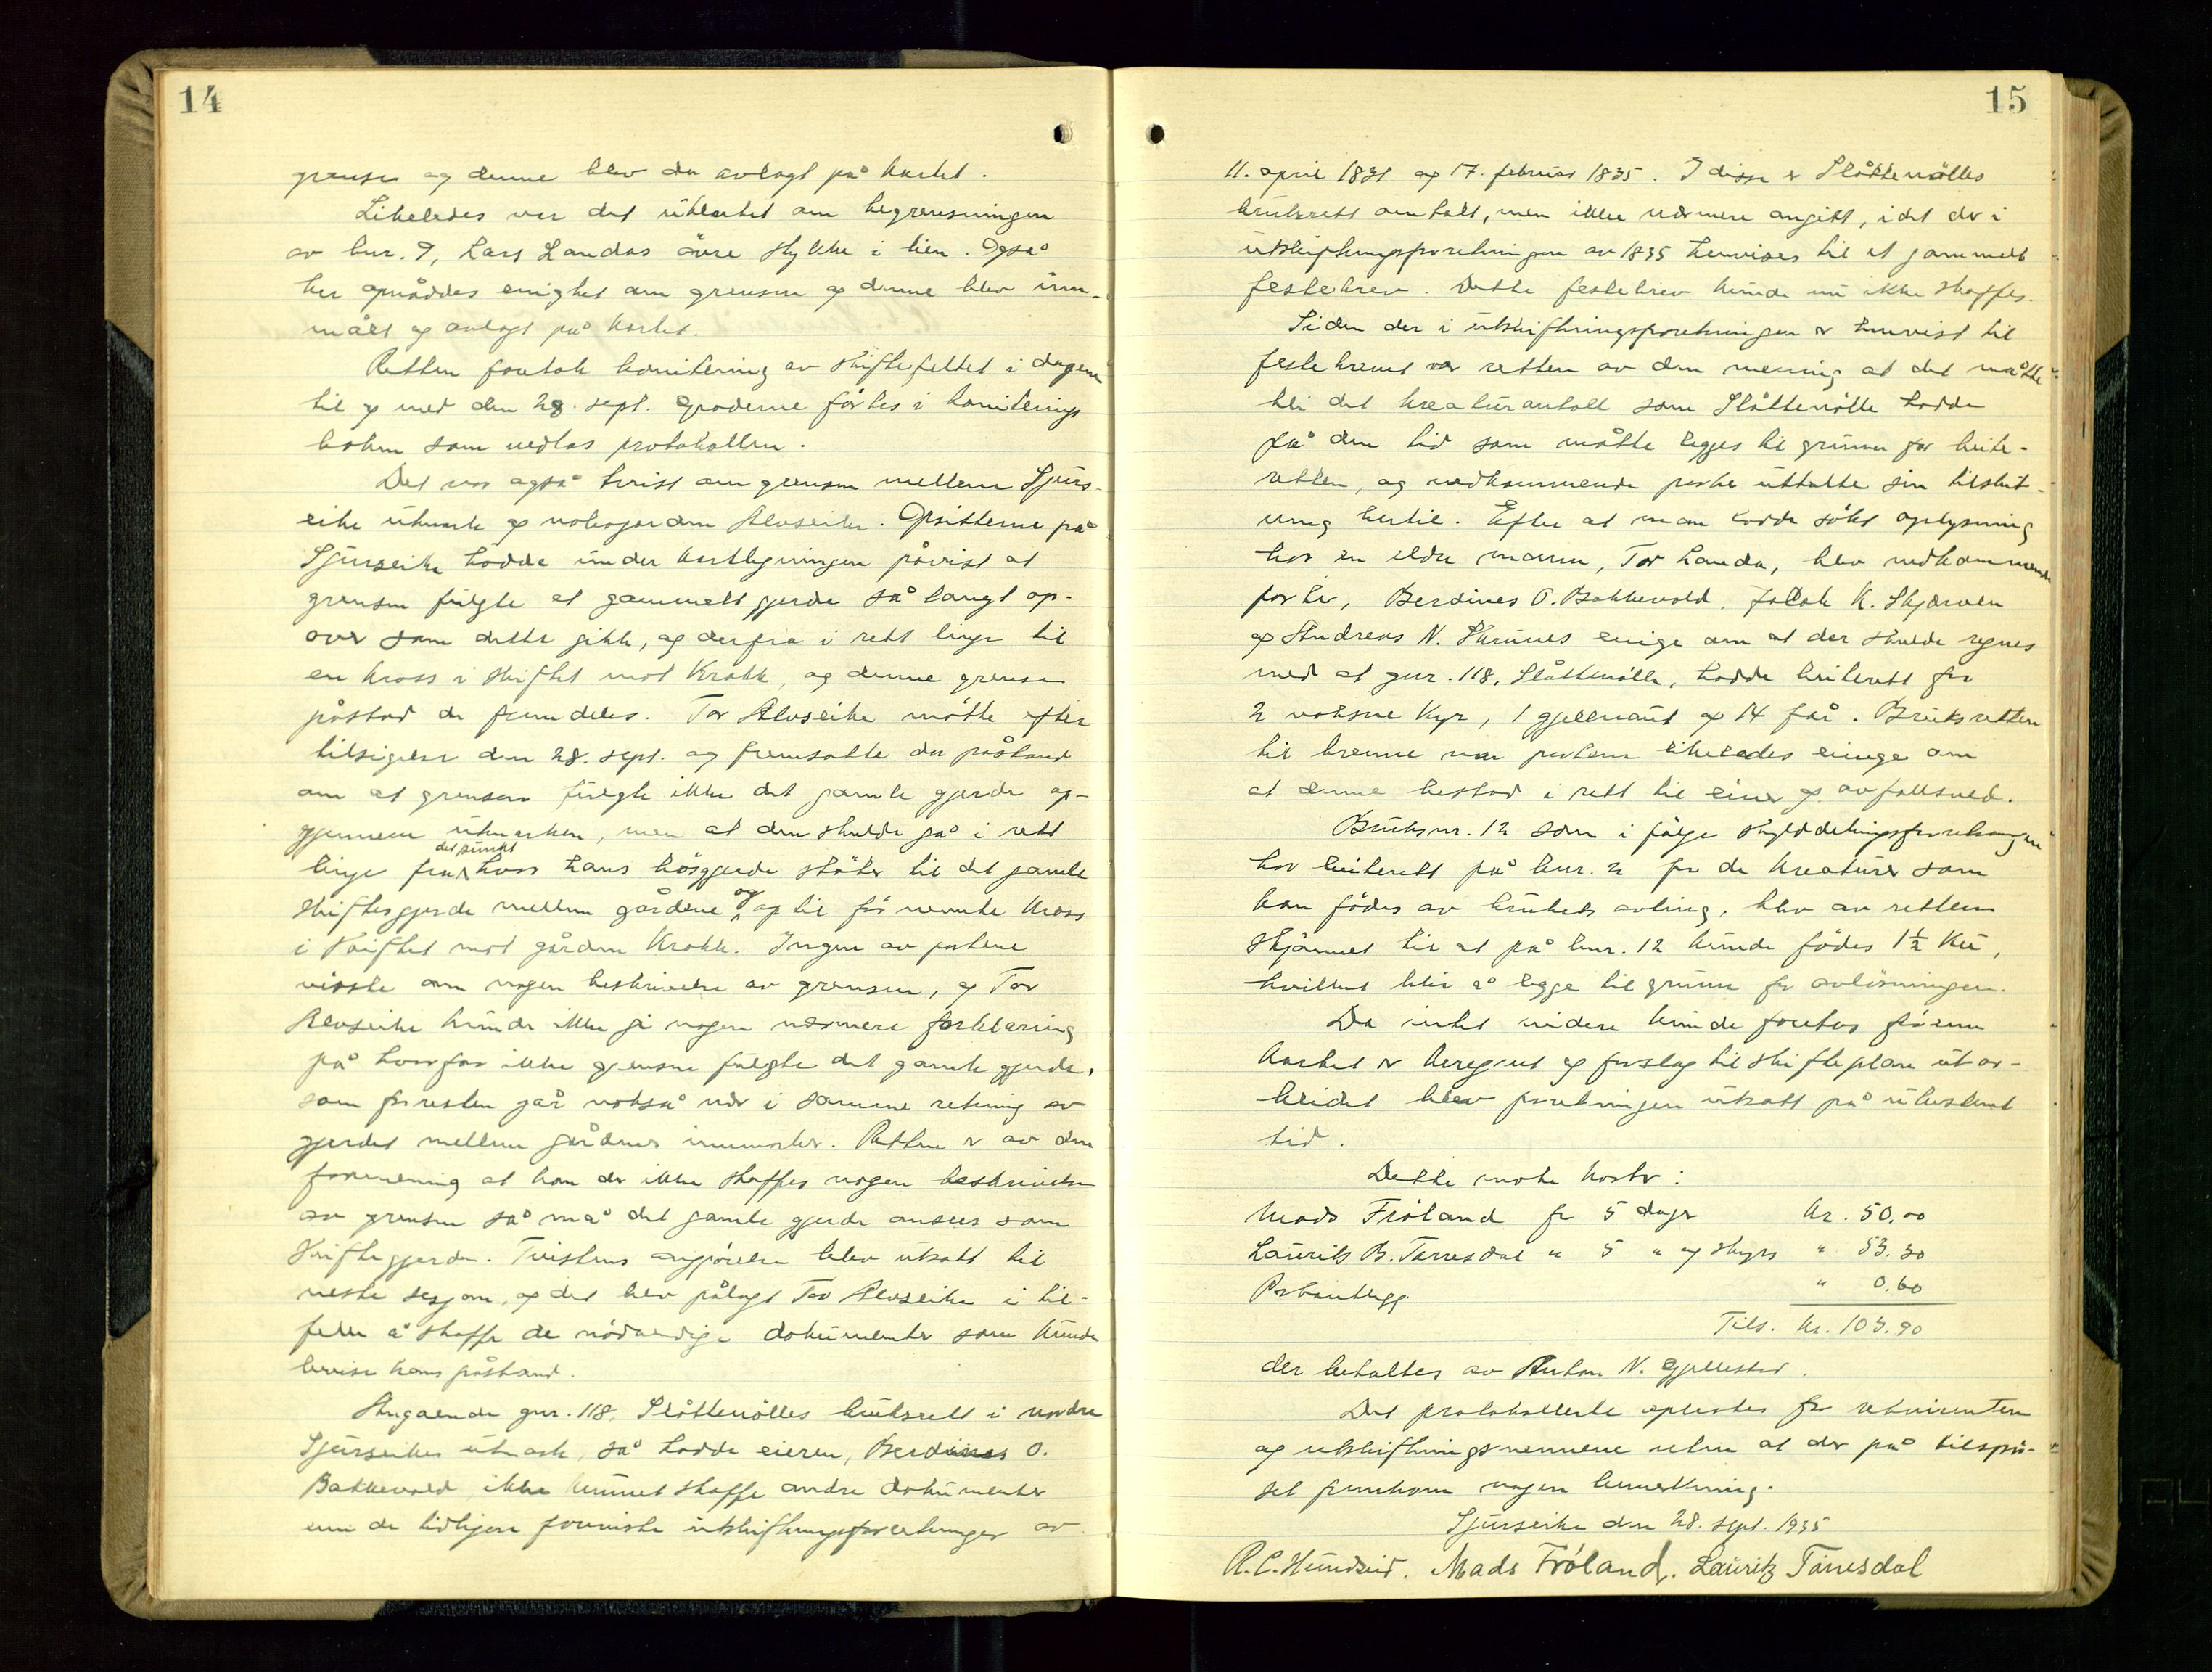 14
grense og denne blev da avlagt på kartet.
Likeledes var det uklarhet om begrensningen
av bnr. 9, Lars Landas øvre stykke i lien. Også
her opnåddes enighet om grensen og denne blev inn-
målt og avlagt på kartet.
Retten foretok bonitering av skiftefeltet i dagene
til og med den 28. sept. Graderne förtes i boniterings
boken som vedlas protokollen.
Det var også tvist om grensen mellem Sjurs-
eike utmark og nabogarden Alvseike. Opsitterne på
Sjurseike hadde under kartlegningen påvist at
grensen fulgte et gammelt gjerde så langt op-
over som dette gikk, og derfra i rett linje til
en kross i skiftet mot Krakk, og denne grense
påstod de fremdeles. Tor Alvseike møtte efter
tilsigelse den 28. sept. og fremsatte da påstand
om at grensen fulgte ikke det gamle gjerde op-
gjennem utmarken, men at den skulde gå i rett
linje fra det punkt hvor hans bösgjerde støter til det gamle
skiftesgjerde mellem gårdene og op til før nevnte kross
i skiftet mot gården Krakk. Ingen av partene
visste om nogen beskrivelse av grensen, og Tor
Alvseike kunde ikke gi nogen nærmere forklaring
på hvorfor ikke grensen fulgte det gamle gjerde,
som forresten går nokså nær i samme retning av
gjerdet mellem gårdenes innmarker. Retten er av den
formening at kan der ikke skaffes nogen beskrivelse
av grensen så må det gamle gjerde ansees som
skiftegjerde. Tvistens avgjørelse blev utsatt til
neste sesjon, og det blev pålagt Tor Alvseike i til-
felle å skaffe de nödvendige dokumenter som kunde
bevise hans påstand.
Angaaende gnr. 118, Slåttenölles bruksrett i nordre
Sjurseikes utmark, så hadde eieren, Berdines O.
Bakkevold ikke kunnet skaffe andre dokumenter
enn de tidligere foreviste utskiftningsforretninger av
15
11. april 1831 og 17. februar 1835. I disse er Slåttenölles
bruksrett omtalt, men ikke nærmere angitt, idet der i
utskiftningsforretningen av 1835 henvises til et gammelt
festebrev. Dette festebrev kunde nu ikke skaffes.
Siden der i utskiftningsforretningen er henvist til
festebrevet var retten av den mening at det måtte
bli det kreaturantall som Slåttenölle hadde
på den tid som måtte legges til grunn for beite-
retten, og vedkommende parter uttalte sin tilslut-
ning hertil. Efter at man hadde søkt oplysning
hos en eldre mann, Tor Landa, blev vedkommende
parter, Berdines O. Bakkevold, Jakob K. Skjerven
og Andreas N. Skrunes enige om at der skulde regnes
med at gnr. 118, Slåttenölle, hadde beiterett for
2 voksne kyr, 1 gjellnaut og 14 får. Bruksretten
til brenne var partene likeledes einige om
at denne bestod i rett til einer og avfallsved.
Bruksnr. 12 som i følge skylddelingsforretningen
har beiterett på bnr. 2 for de kreaturer som
kan födes av brukets avling, blev av retten
skjønnet til at på bnr. 12 kunde födes 1½ ku,
hvilket blir å legge til grunn for avløsningen.
Da intet videre kunde foretas förenn
kartet er beregnet og forslag til skifteplan utar-
beidet blev forretningen utsatt på ubestemt
tid.
Dette møte koster:
Mads Fröland for 5 dager kr. 50,00
Lauritz B. Tørresdal " 5 " og skyss " 53.30
Protbutlegg " 0.60
Tils. kr. 103.90
der betaltes av Anton N. Gjellestad.
Det protokollerte oplestes for rekvirenten
og utskiftningsmennene uten at der på tilspör-
sel fremkom nogen bemerkning.
Sjurseike den 28. sept. 1935
R.C. Hundseid. Mads Fröland. Lauritz Tørresdal